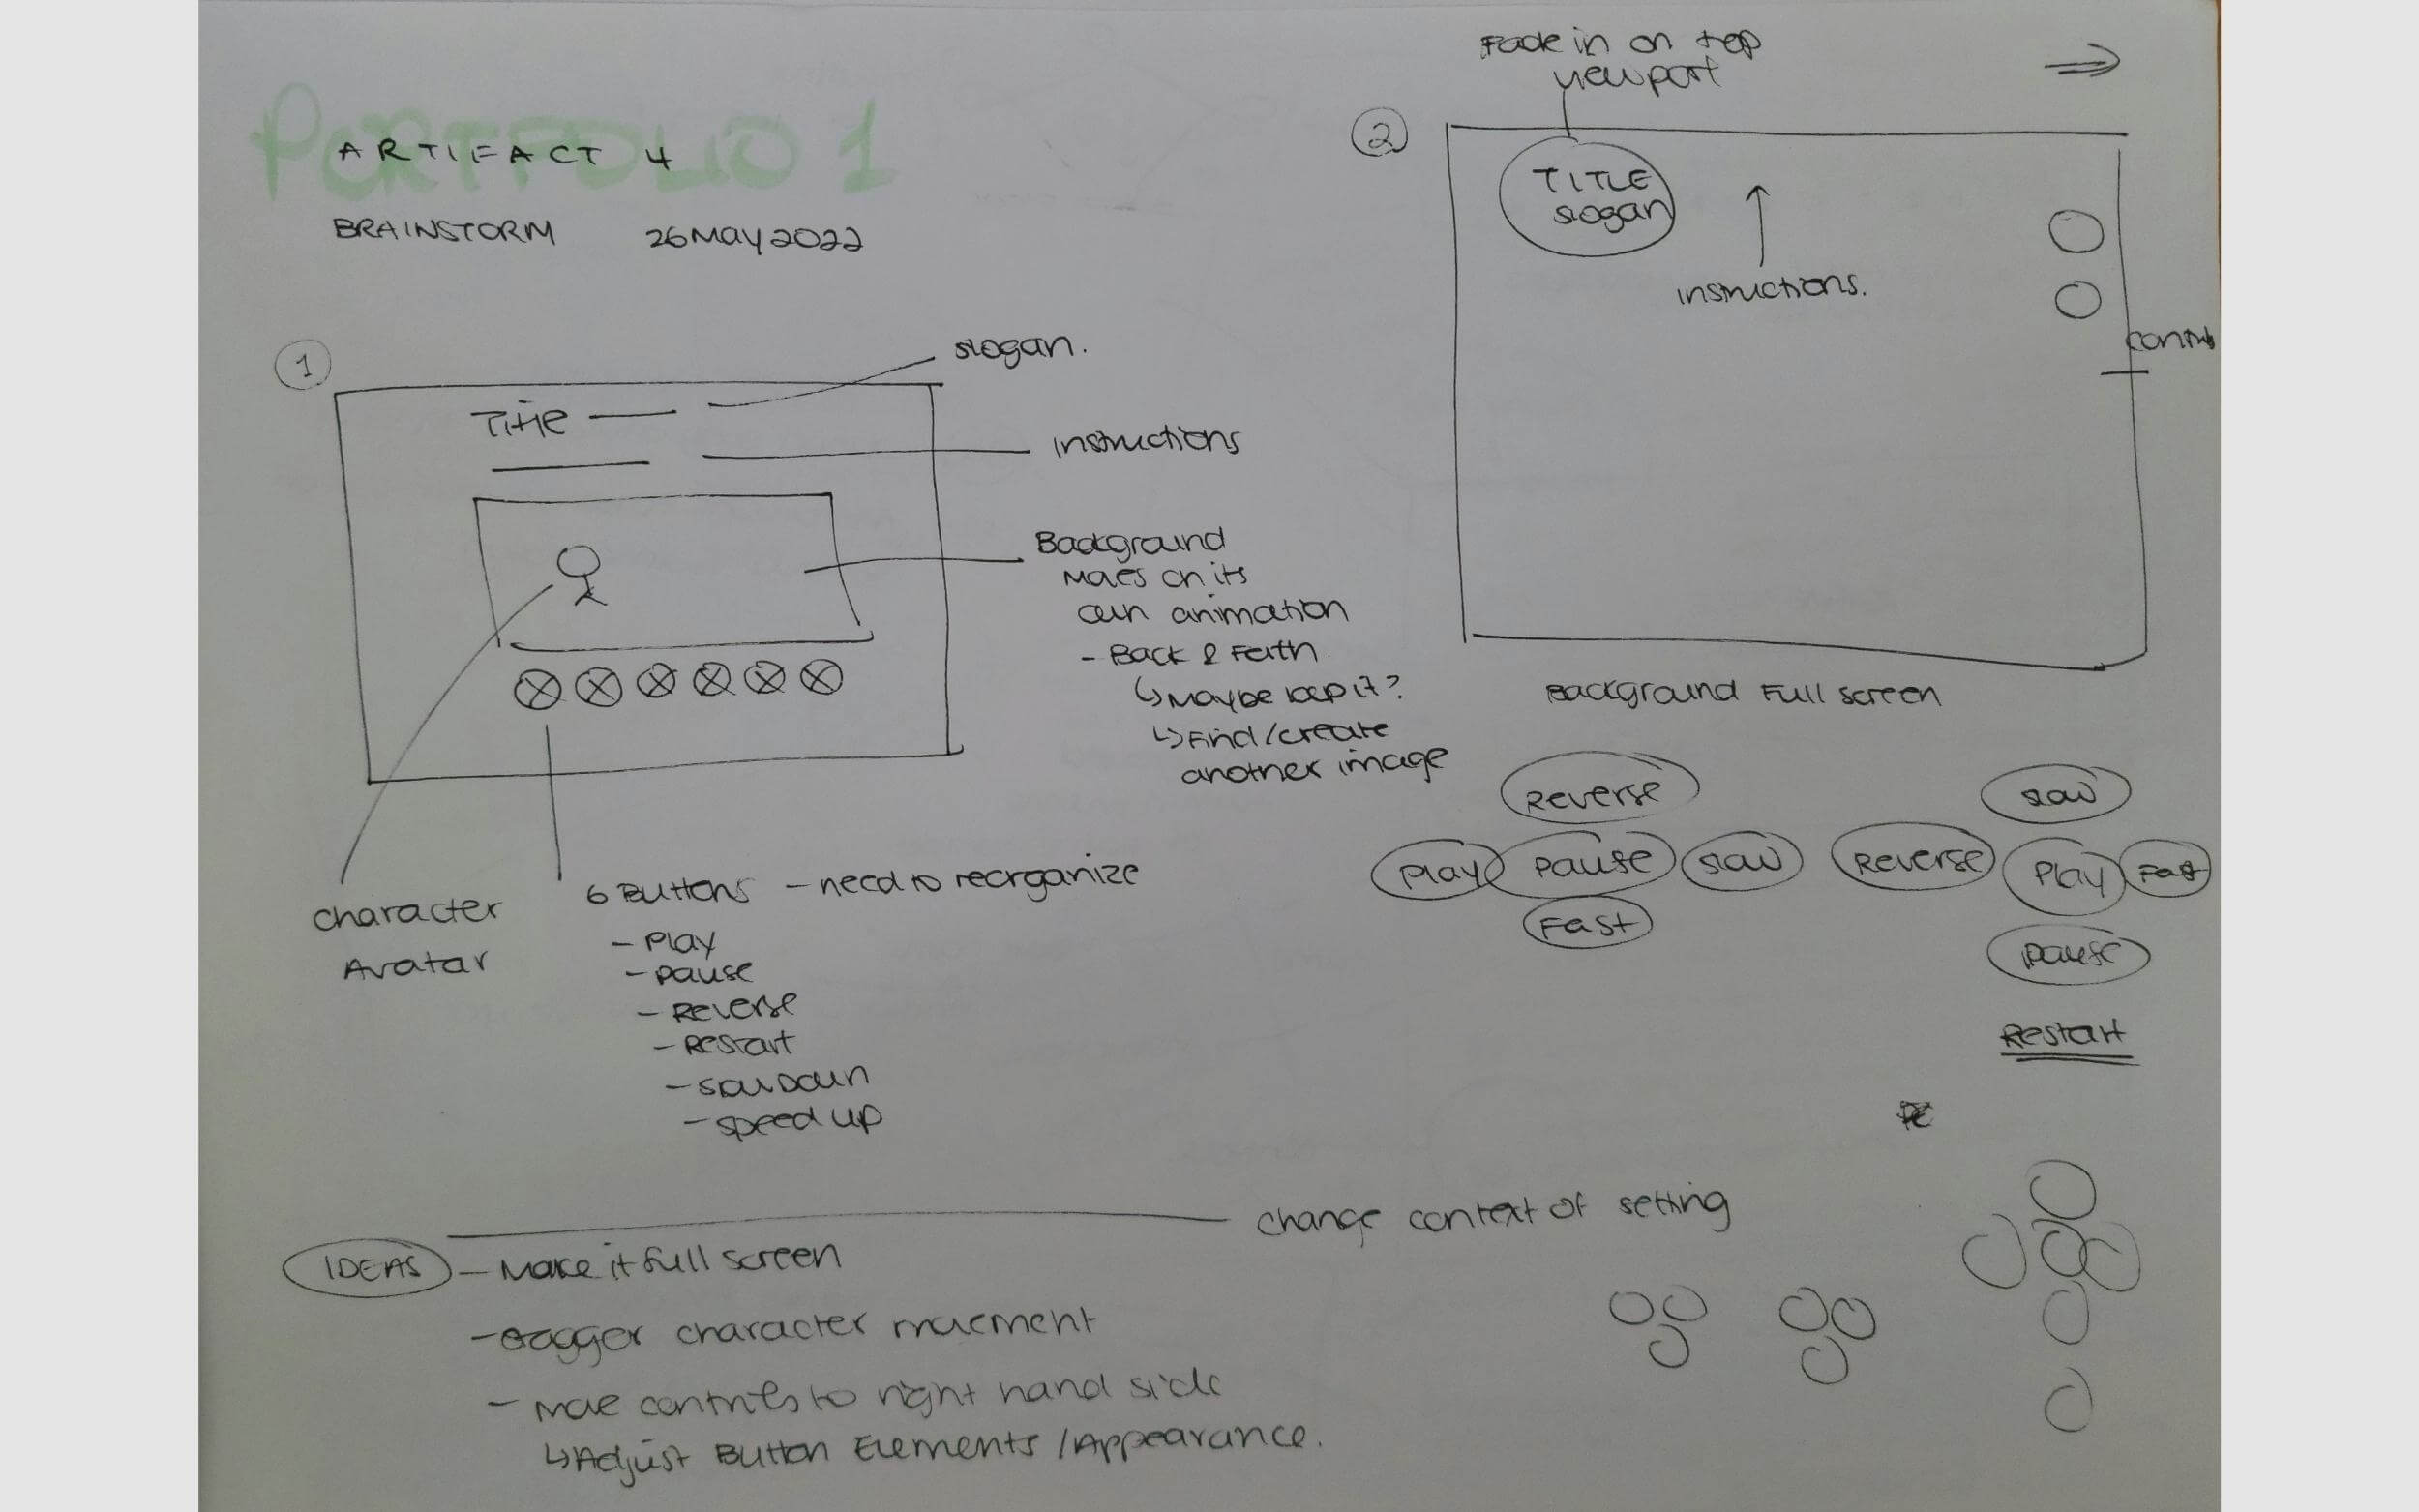 PORTFOLIO 1
ARTIFACT 4
BRAINSTORM 26 May 2022
1
slogan.
Title
Instructions
Background
moves on its
own animation
- Back & Forth
↳ Maybe loop it?
↳ Find/create
another image
Character
Avatar
6 Buttons - need to reorganize
- Play
- Pause
- Reverse
- Restart
- Slow Down
- Speed up
Fade in on top
viewport
⇒
2
TITLE
slogan
↑
instructions.
Background Full screen
Reverse
Play Pause Slow
Fast
Slow
Reverse Play Fast
Pause
Restart
change context of setting
IDEAS - Make it full screen
- character movement
- Move controls to right hand side
↳ Adjust Button Elements / Appearance.